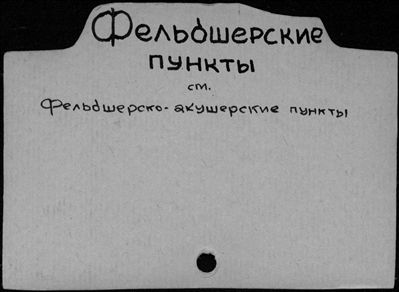 Фельдшерские
пункты
см.
Фельдшерско-акушерские пункты